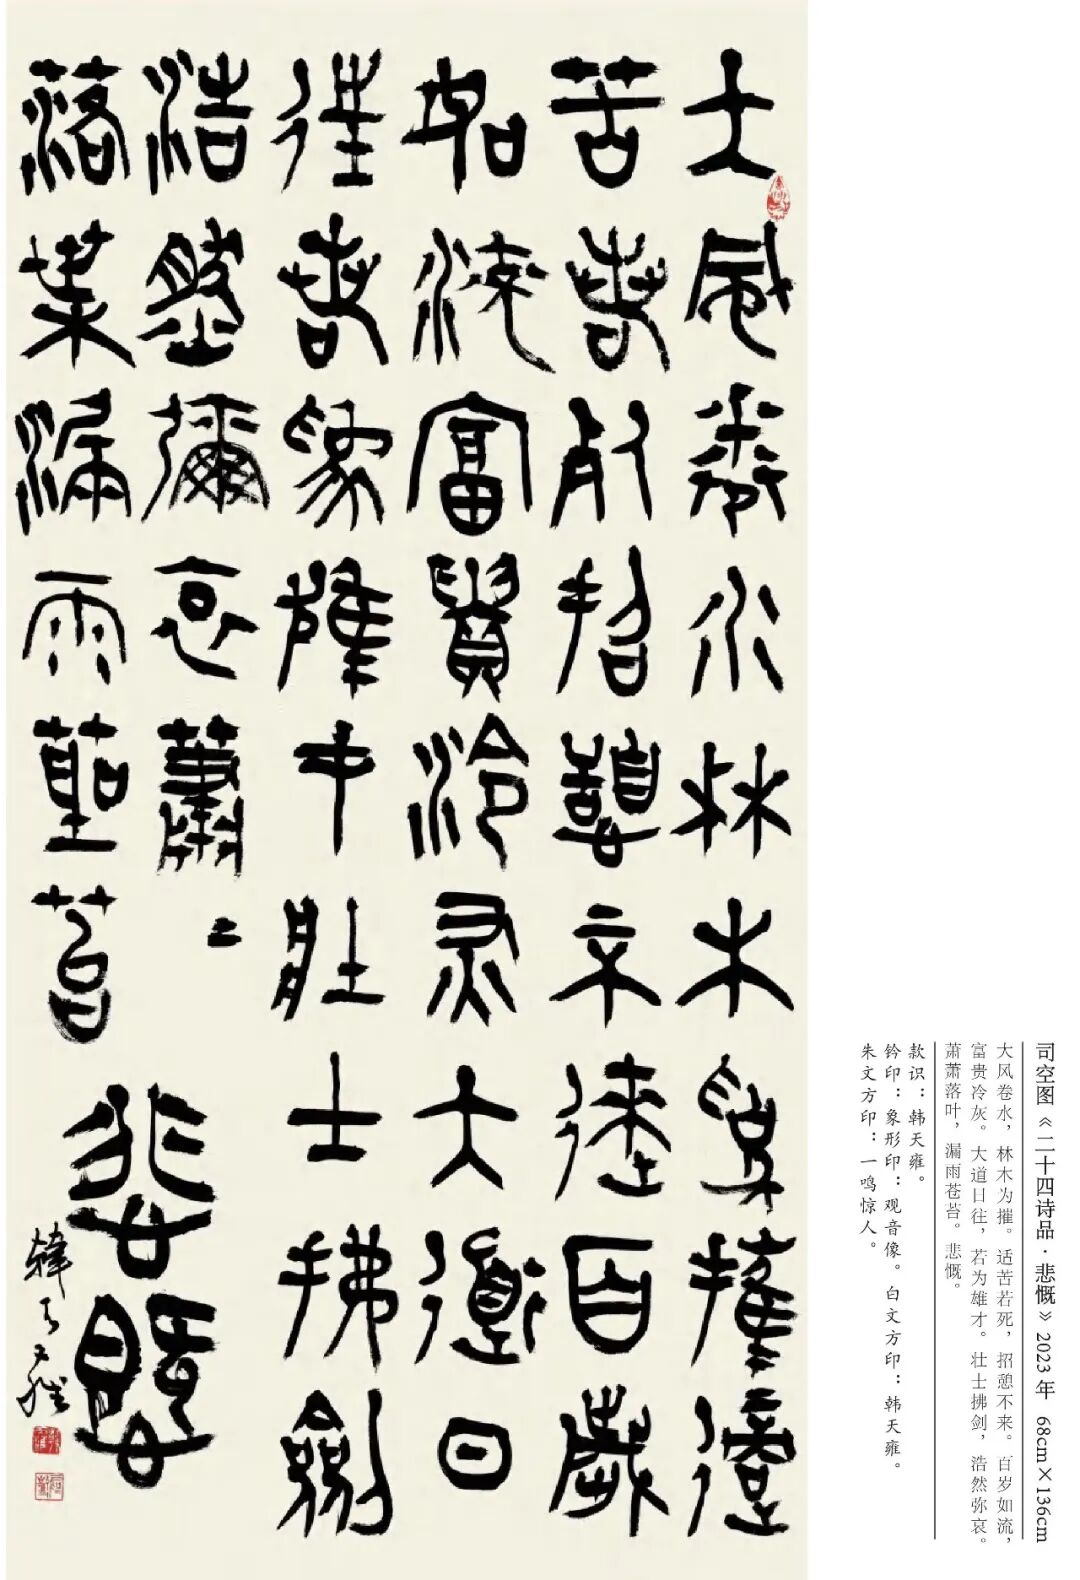 大風卷水林木為摧適
苦若死招憩不來百歲
如流富貴冷灰大道日
往若為雄才壯士拂劍
浩然彌哀蕭〻
落葉漏雨蒼苔
悲慨
韓天雍
司空图《二十四诗品·悲慨》2023年 68cm×136cm
大风卷水，林木为摧。适苦若死，招憩不来。百岁如流，
富贵冷灰。大道日往，若为雄才。壮士拂剑，浩然弥哀。
萧萧落叶，漏雨苍苔。悲慨。
款识：韩天雍。
钤印：象形印：观音像。白文方印：韩天雍。
朱文方印：一鸣惊人。